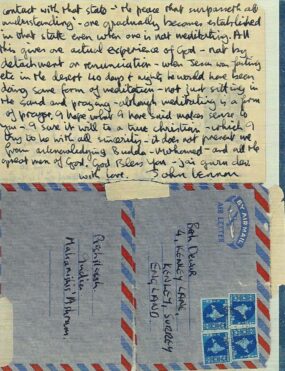 contact with that state - "the peace that surpasseth all
understanding" - one gradually becomes established
in that state even when one is not meditating. All
this gives one actual experience of God - not by
detachment or renunciation - when Jesus was fasting
etc in the desert 40 days & nights he would have been
doing some form of meditation - not just sitting in
the sand and praying - although meditating is a form
of prayer. I hope what I have said makes sense to
you - I sure it will to a true christian - which I
try to be with all sincerity - it does not prevent me
from acknowledging Budda - Mohamed - and all the
great men of God. God Bless You - jai guru dev
with love. John Lennon
BY AIR MAIL
AIR LETTER
Beth
4, KENLEY LANE,
KENLEY, SURREY
ENGLAND.
Rishikesh
India
Maharishi's Ashram.